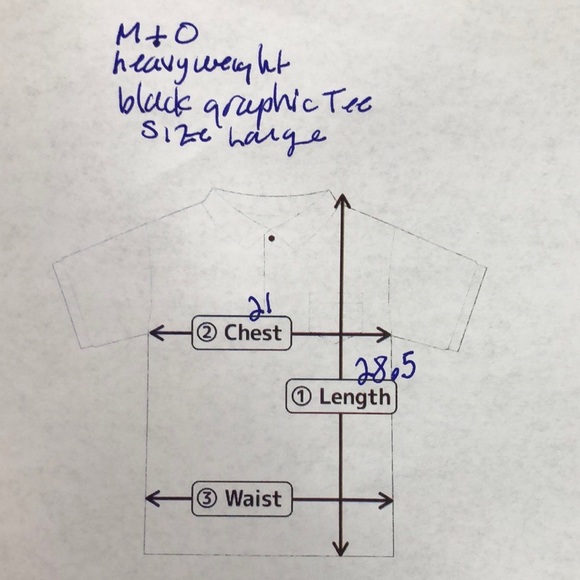 M+O
heavyweight
black graphic Tee
Size Large
21
② Chest
28.5
① Length
③ Waist